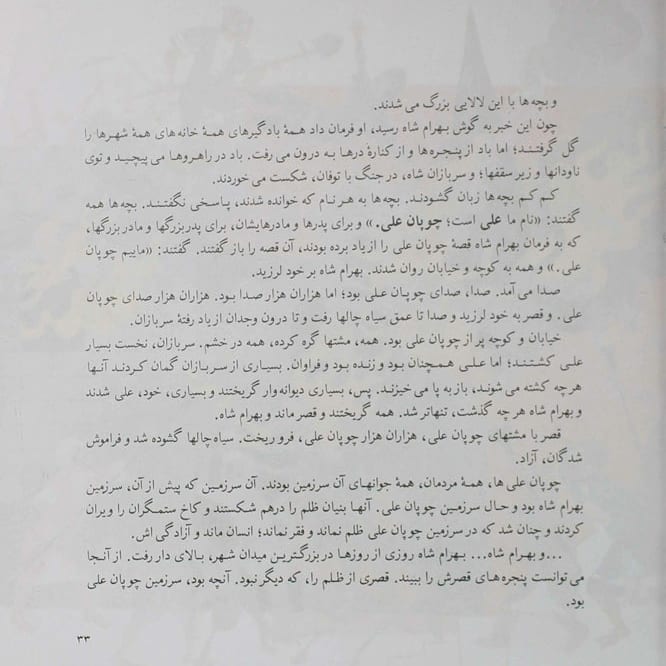 و بچه‌ها با این لالایی بزرگ می‌شدند.
چون این خبر به گوش بهرام شاه رسید، او فرمان داد همهٔ بادگیرهای همهٔ خانه‌های همهٔ شهرها را
گل گرفتند؛ اما باد از پنجره‌ها و از کنارهٔ درها به درون می‌رفت. باد در راهروها می‌پیچید و توی
ناودانها و زیر سقفها؛ و سربازان شاه، در جنگ با توفان، شکست می‌خوردند.
کم کم بچه‌ها زبان گشودند. بچه‌ها به هر نام که خوانده شدند، پاسخی نگفتند. بچه‌ها همه
گفتند: «نام ما علی است؛ چوپان علی.» و برای پدرها و مادرهایشان، برای پدربزرگها و مادربزرگها،
که به فرمان بهرام شاه قصهٔ چوپان علی را از یاد برده بودند، آن قصه را باز گفتند. گفتند: «ماییم چوپان
علی.» و همه به کوچه و خیابان روان شدند. بهرام شاه بر خود لرزید.
صدا می‌آمد. صدا، صدای چوپان علی بود؛ اما هزاران هزار صدا بود. هزاران هزار صدای چوپان
علی. و قصر به خود لرزید و صدا تا عمق سیاه چالها رفت و تا درون وجدان از یاد رفتهٔ سربازان.
خیابان و کوچه پر از چوپان علی بود. همه، مشتها گره کرده، همه در خشم. سربازان، نخست بسیار
علی کشتند؛ اما علی همچنان بود و زنده بود و فراوان. بسیاری از سربازان گمان کردند آنها
هر چه کشته می‌شوند، باز به پا می‌خیزند. پس، بسیاری دیوانه‌وار گریختند و بسیاری، خود، علی شدند
و بهرام شاه هر چه گذشت، تنهاتر شد. همه گریختند و قصر ماند و بهرام شاه.
قصر با مشتهای چوپان علی، هزاران هزار چوپان علی، فرو ریخت. سیاه چالها گشوده شد و فراموش
شدگان، آزاد.
چوپان علی‌ها، همهٔ مردمان، همهٔ جوانهای آن سرزمین بودند. آن سرزمین که پیش از آن، سرزمین
بهرام شاه بود و حال سرزمین چوپان علی. آنها بنیان ظلم را درهم شکستند و کاخ ستمگران را ویران
کردند و چنان شد که در سرزمین چوپان علی ظلم نماند و فقر نماند؛ انسان ماند و آزادگی‌اش.
...و بهرام شاه... بهرام شاه روزی از روزها در بزرگترین میدان شهر، بالای دار رفت. از آنجا
می‌توانست پنجره‌های قصرش را ببیند. قصری از ظلم را، که دیگر نبود. آنچه بود، سرزمین چوپان علی
بود.
۳۳